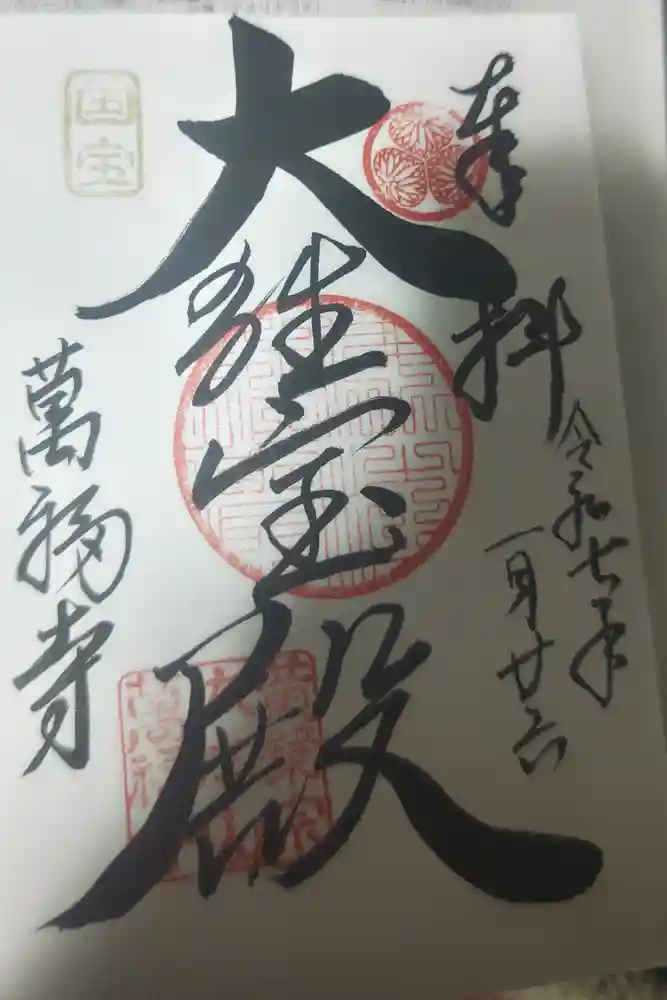 奉拝
令和七年
一月廿六
大雄宝殿
萬福寺
国宝